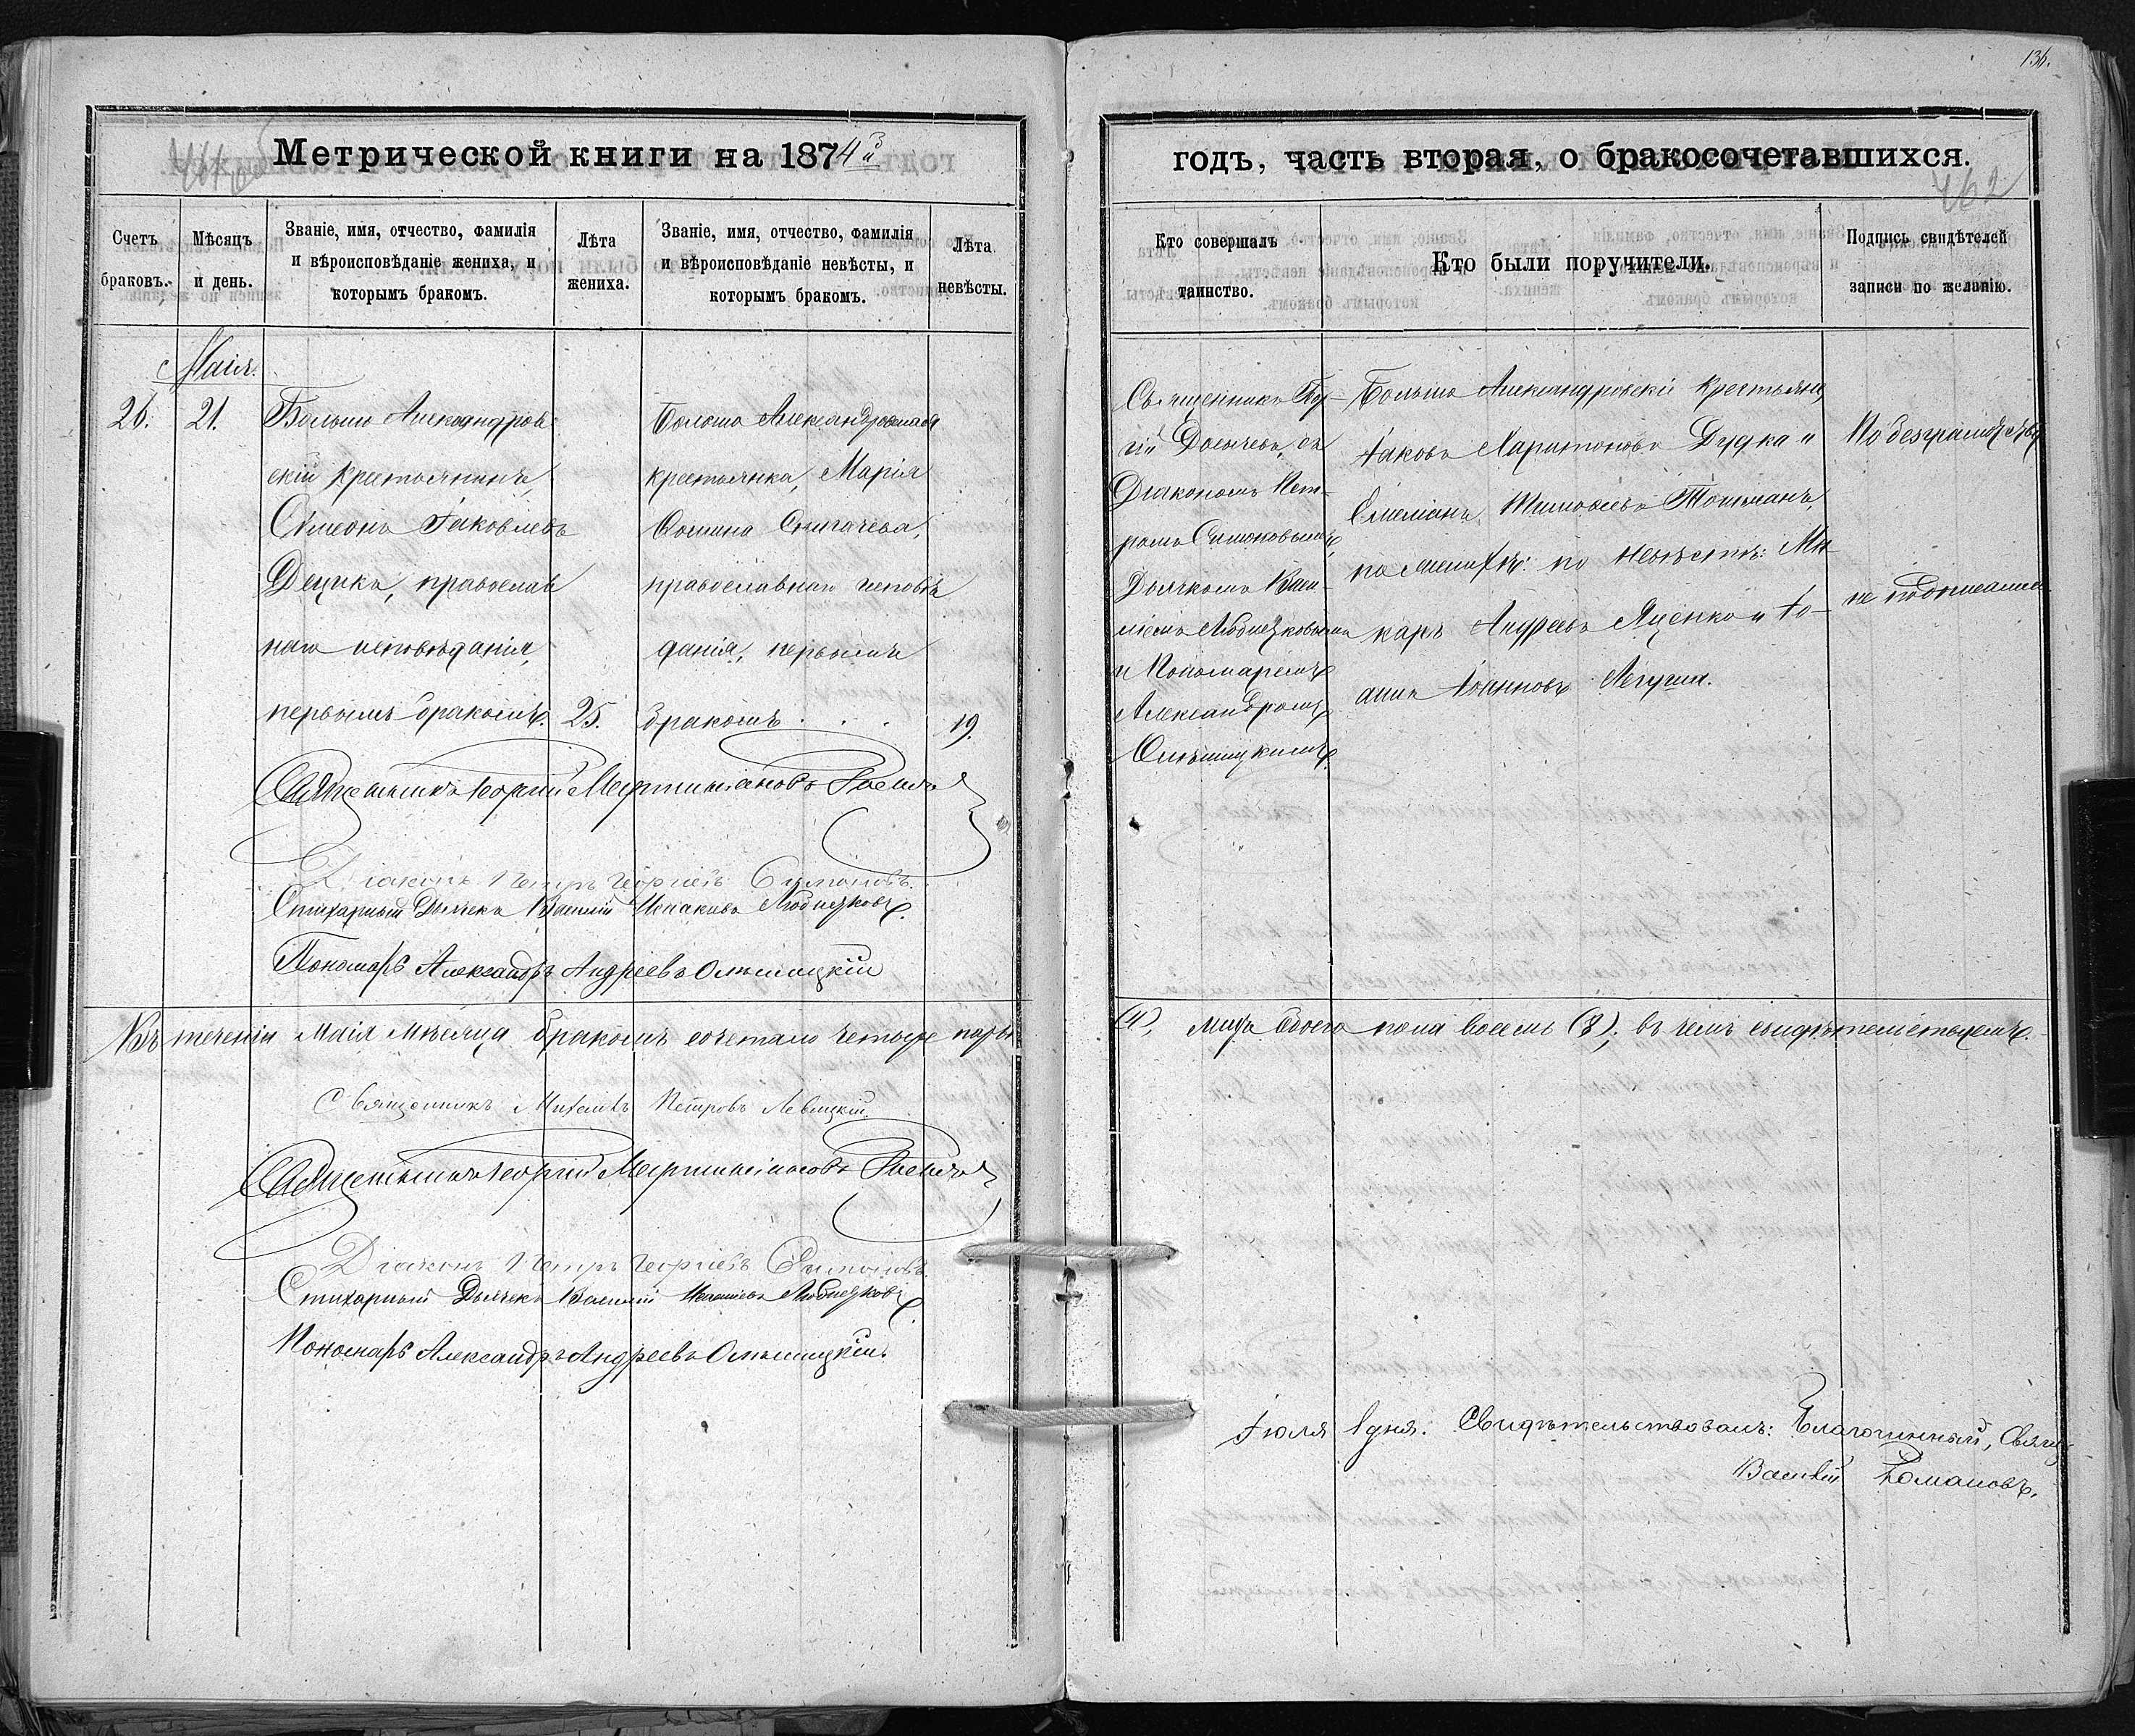 136.
Метрической книги на 1874й
годъ, часть вторая, о бракосочетавшихся.
462
Счетъ браковъ.
Мѣсяцъ и день.
Званіе, имя, отчество, фамилія и вѣроисповѣданіе жениха, и которымъ бракомъ.
Лѣта жениха.
Званіе, имя, отчество, фамилія и вѣроисповѣданіе невѣсты, и которымъ бракомъ.
Лѣта невѣсты.
Кто совершалъ таинство.
Кто были поручители.
Подпись свидѣтелей записи по желанію.
Маія.
26.
21.
Больше Александров-
скій крестьянинъ,
Сѵмеонъ Іаковлевъ
православ
наго исповѣданія,
первымъ бракомъ.
25.
Больше Александровская
крестьянка, Марія
Ѳомина
православнаго исповѣ
данія, первымъ
бракомъ . . .
19.
Священникъ Геор-
гій съ
Діакономъ Пет-
ромъ Симоновымъ,
Дьячкомъ Васи-
ліемъ
и Пономаремъ
Александромъ
Больше Александровскіе крестьяне,
Іаковъ Харитоновъ Дудка и
Емеліанъ Тимоѳеевъ
по женихѣ: по невѣстѣ: Ма-
каръ Андреевъ Яценко и Іо-
аннъ Іоанновъ
По безграмотству
не подписались
Священникъ Георгій Мартиніановъ
Діаконъ Петръ Георгіевъ Симоновъ.
Стихарный Дьячекъ Василій
Пономарь Александръ Андреевъ Ольшицкій
Въ теченіи Маія мѣсяца бракомъ сочетано четыре пары
(4), лицъ обоего пола восемь (8); въ чемъ свидѣтельствуемъ.
Священникъ Михаилъ Петровъ Левицкій.
Священникъ Георгій Мартиніановъ
Діаконъ Петръ Георгіевъ Симоновъ.
Стихарный Дьячекъ Василій
Пономарь Александръ Андреевъ Ольшицкій.
Іюля 1 дня. Свидѣтельствовалъ: Благочинный, Свящ.
Василій Романовъ.